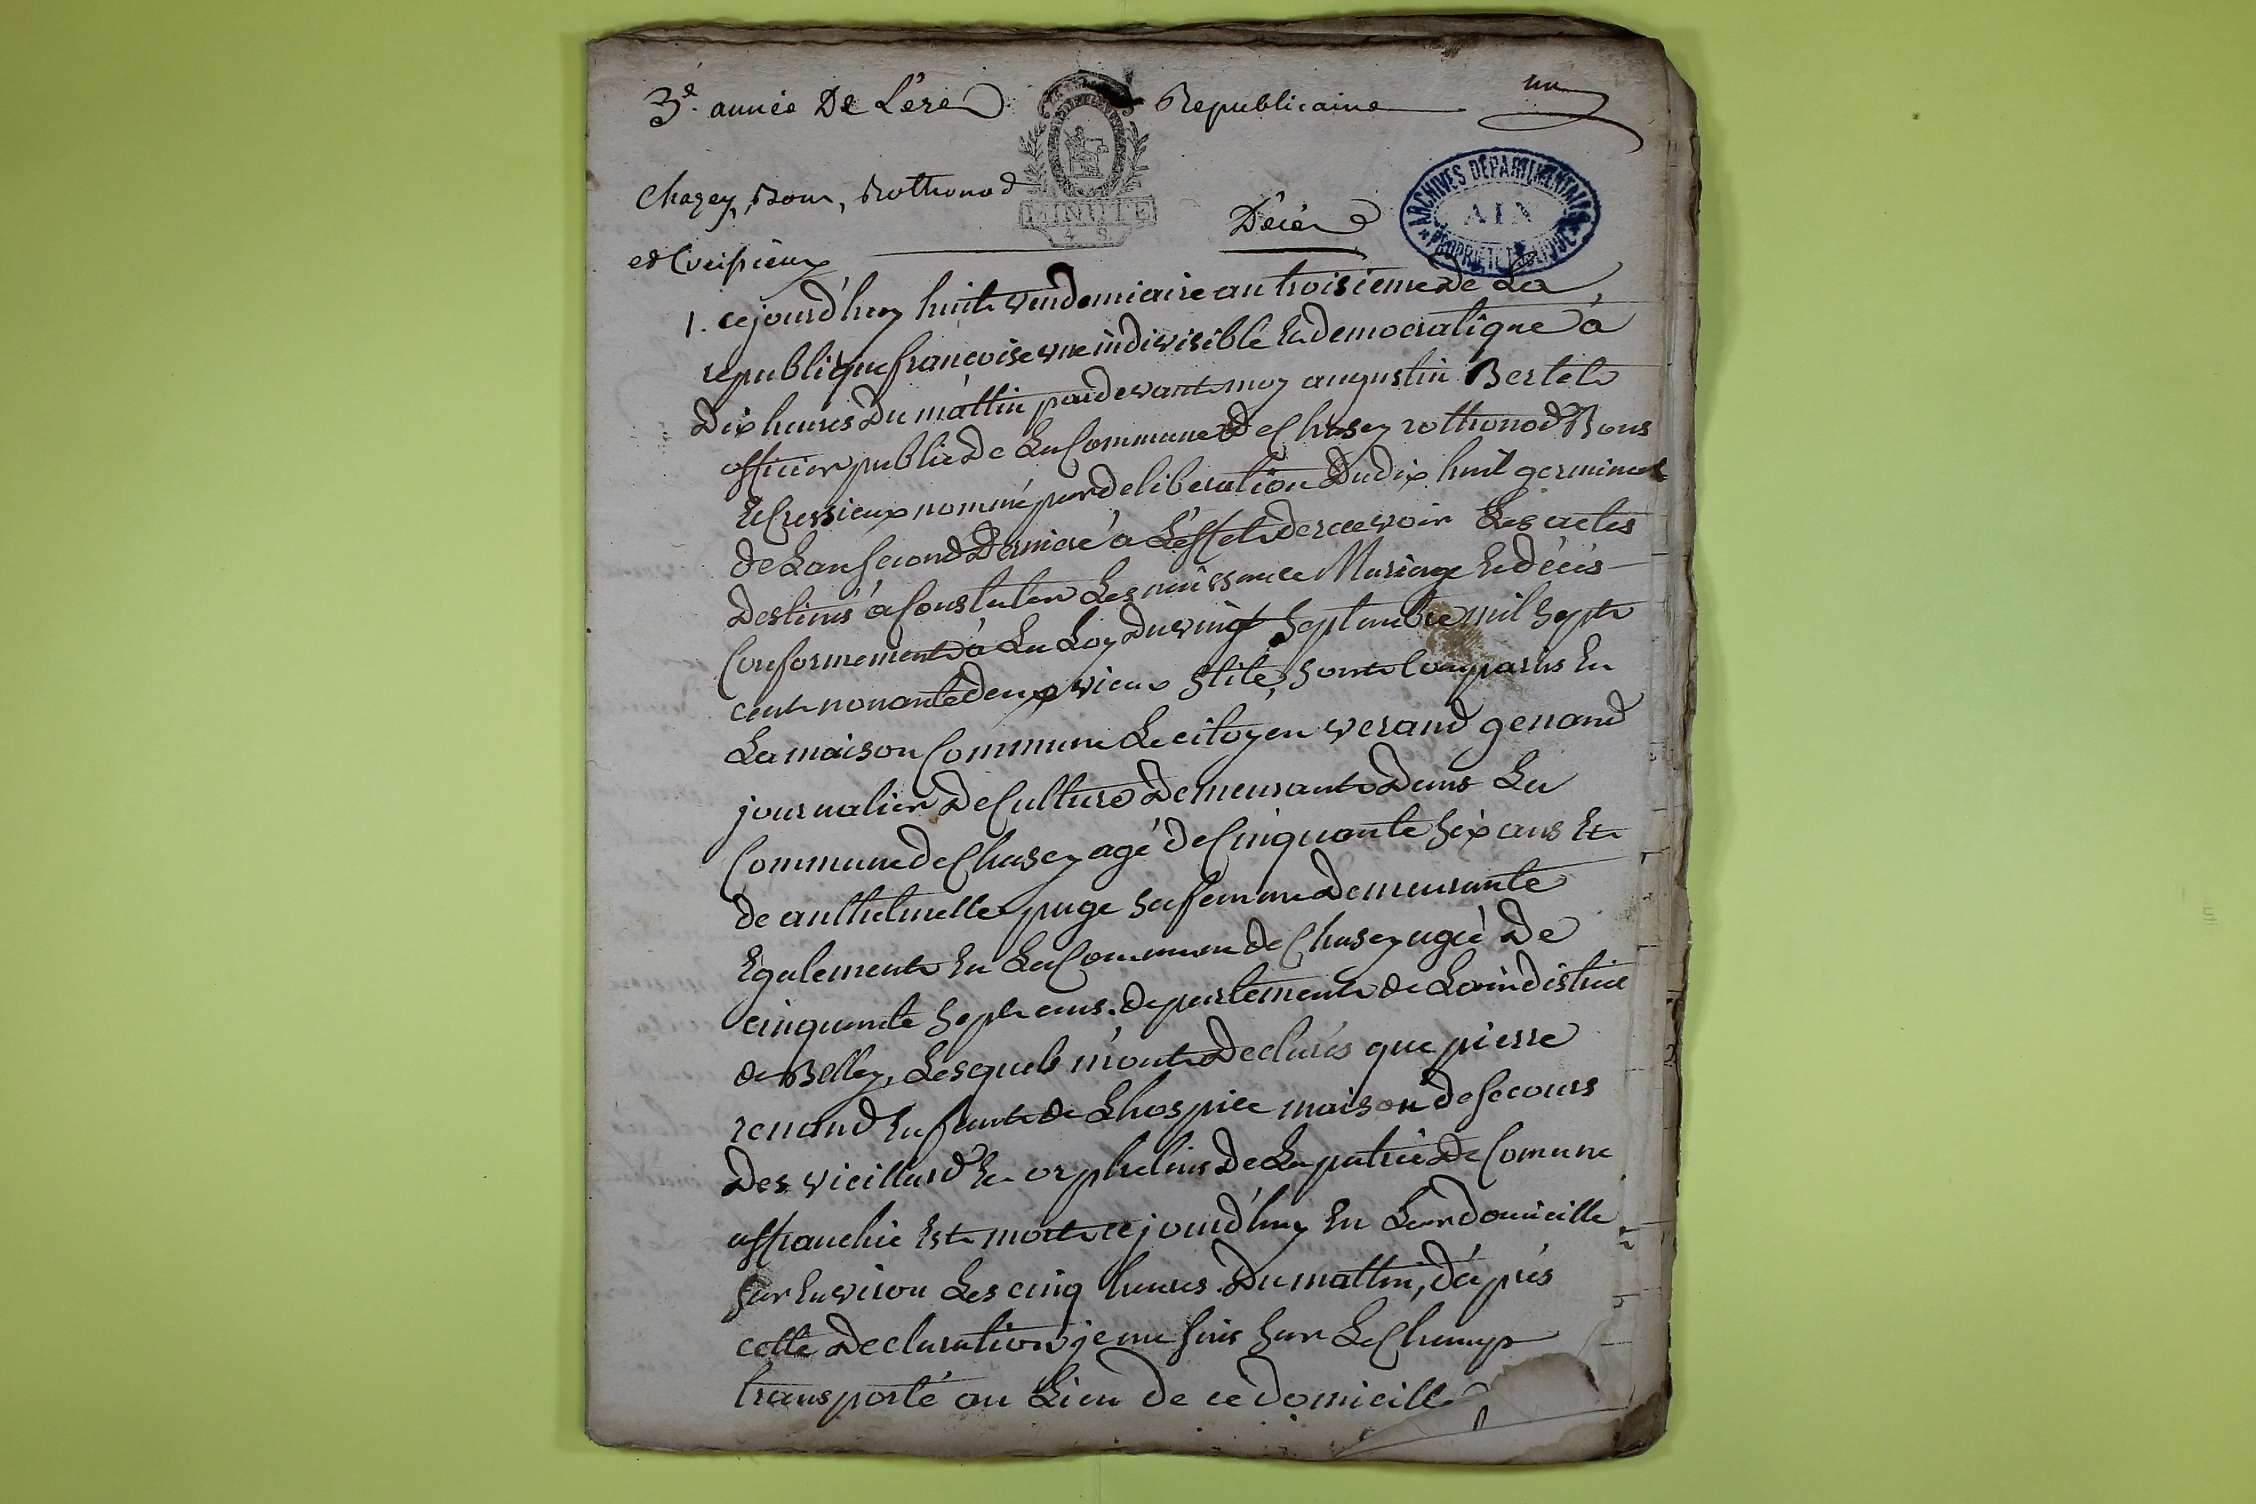 3e. année De L'ere Republicaine un
Chazey, Bons, Rothonod
MINUTE
4. S.
Décés
ARCHIVES DÉPARTEMENTALES
AIN
PROPRIÉTÉ PUBLIQUE
et Cressieux
1. cejourd'huy huit vendemiaire an troisieme de La
republique françoise une indivisible Et democratique à
Dix heures Du mattin pardevant moy augustin Bertet
officier public De La Commune De Chasey rothonod Bons
Et Cressieux nommé par deliberation Du dix huit germinal
de L'an second Derniere à L'effet de recevoir Les actes
Destinés à Constater Les naissance Mariage Et décés
Conformement à La Loy du vingt Septembre mil Sept
cent nonante deux vieux Stile, Sont Comparus En
La maison Commune Le citoyen verand genand
journalier De Culture Demeurant Dans La
Commune de Chasey agé de Cinquante Six ans Et
de anthelmette puge Sa femme Demeurante
Egalement En La Commune de Chasey agée De
cinquante Sept ans. departement de Lain district
de Belley, Lesquels m'ont Declarés que pierre
renand Enfant de Lhospice maison de Secours
Des vieillard Et orphelins De La patrie De Comune
affranchie Est mort cejourd'huy En Leur domicille
Sur Environ Les cinq heures Du mattin, d'après
cette Declaration je me Suis Sur Le Champ
transporté au Lieu de ce domicille